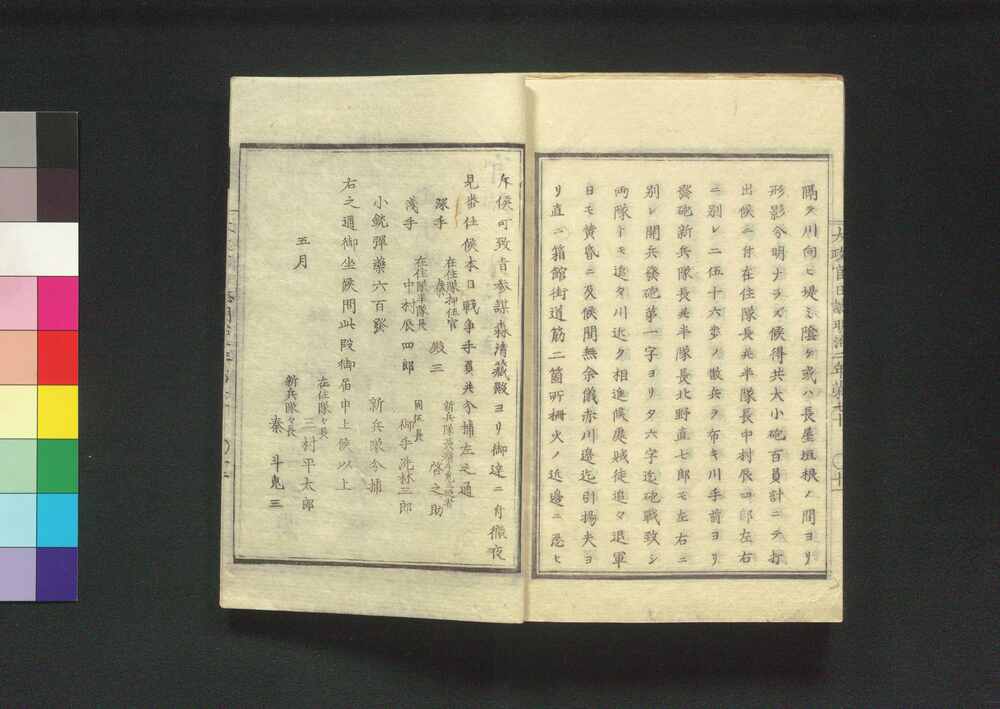 隔テ川向ヒ堤ミ陰ケ或ハ長屋垣根ノ間ヨリ
形影分明ナラス候得共大小砲百員計ニテ打
出候ニ付在住隊長共半隊長中村辰四郎左右
ニ別レ二伍十六歩ノ散兵ヲ布キ川手前ヨリ
發砲新兵隊長共半隊長北野直七郎モ左右ニ
別レ開兵發砲第一字ヨリ夕六字迄砲戰致シ
両隊トモ追々川近ク相進候處賊徒追々退軍
日モ黄昏ニ及候間無余儀赤川邊迄引揚夫ヨ
リ直ニ箱館街道筋二箇所柵火ノ近邊ニ忍ヒ
斥候可致旨参謀森清藏殿ヨリ御達ニ付徹夜
見番仕候本日戰争手負共分捕左之通
深手 在住隊押伍官 殿三
新兵隊 啓之助
淺手 在住隊半隊長 中村辰四郎
同伍長 御手洗林三郎
小銃彈藥六百發 新兵隊分捕
右之通御坐候間此段御届申上候以上
五月
在住隊々長 三村平太郎
新兵隊々長 秦斗鬼三
太政官日誌明治二年